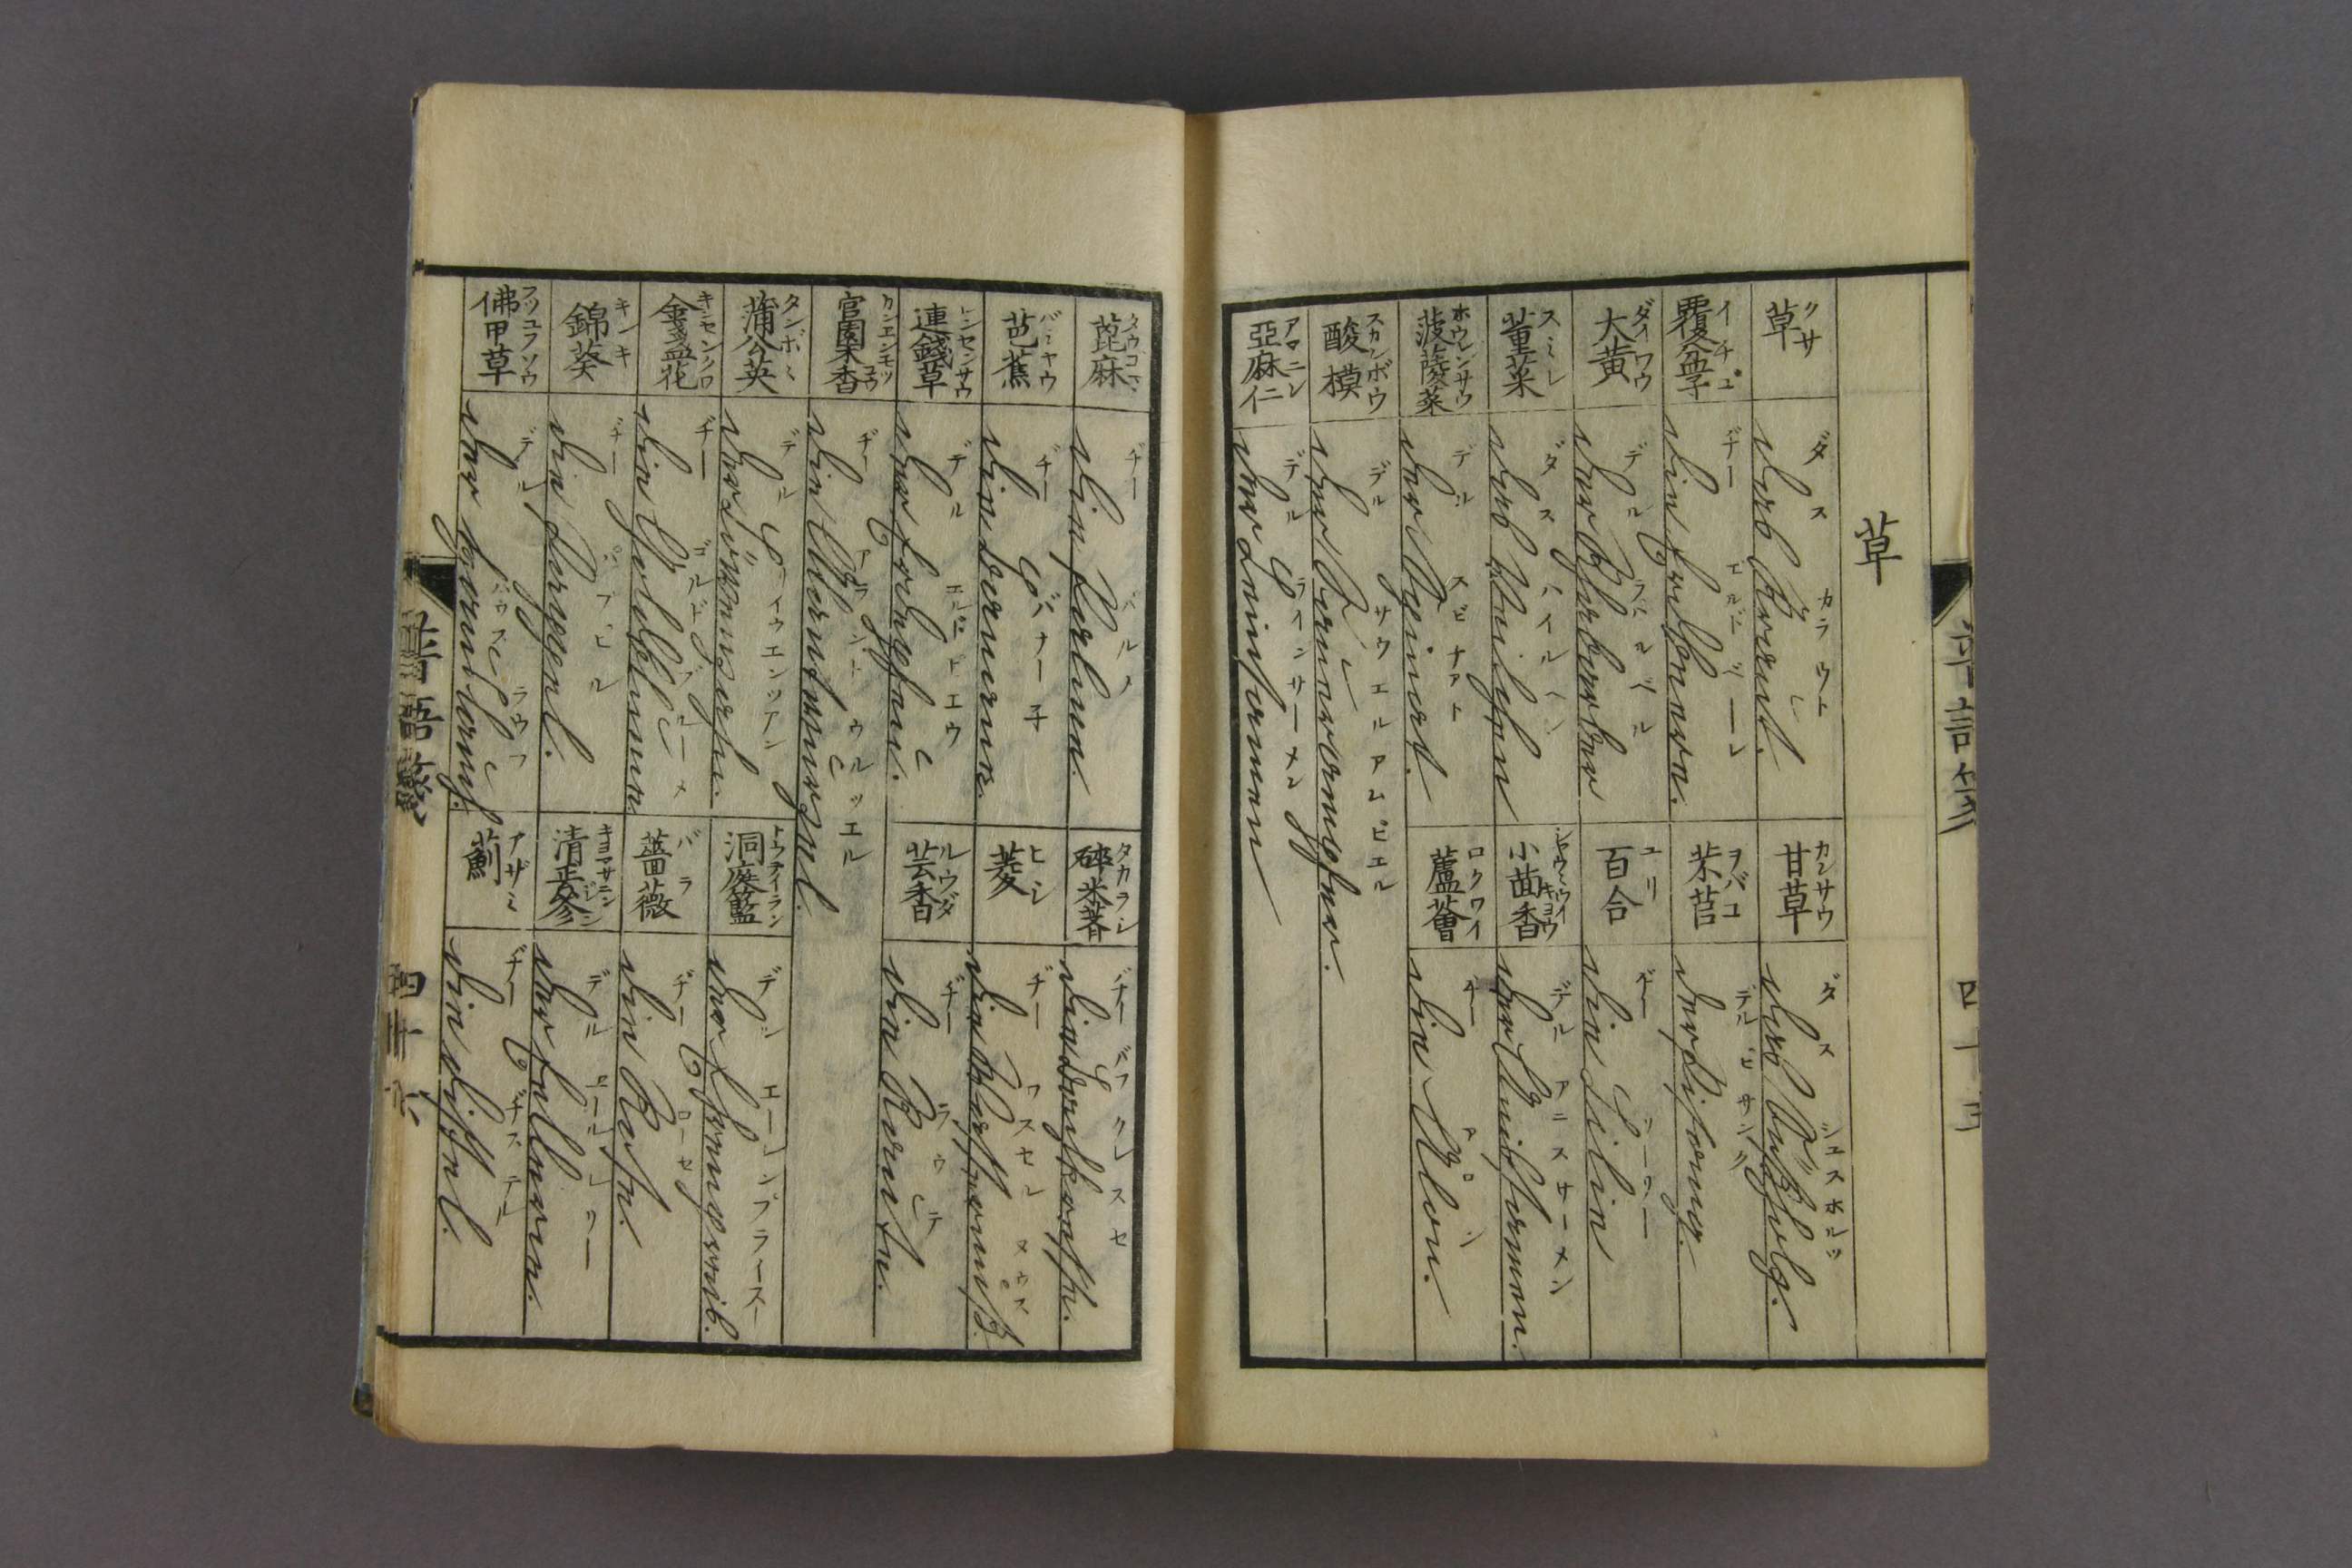 草
草 クサ
das Kraut. ダス カラウト
甘草 カンサウ
das Süßholz. ダス シエスホルツ
覆盆子 イチゴ
die Erdbeere. ヂー
芣苢 ヲバコ
der Bisang. デル ビサング
大黄 ダイワウ
der Rhabarber デル ラバルベル
百合 ユリ
die Lilie ヂー リーリー
菫菜 スミレ
das Veilchen ダス ハイルヘン
小茴香
der Anissamen. デル アニスサーメン
菠薐菜 ホウレンサウ
der Spinat. デル スピナアト
蘆薈 ロクワイ
die Aloe. ヂー
酸模 スカンボウ
der Sauerampfer. デル サウエルアムピエル
亞麻仁 アマニン
der Leinsamen デル ラインサーメン
蓖麻
die ヂー
碎米薺 タカラシ
die Bachkresse. ヂー バフクレスセ
芭蕉
die Banane. ヂー バナー子
菱 ヒシ
die Wassernuß. ヂー ワスセル ヌウス
連錢草 レンセンサウ
der Erdepheu. デル
芸香 ルウダ
die Raute. ヂー ラウテ
官園木香
die Alantwurzel. ヂー アラントウルツエル
蒲公英 タンポポ
der Löwenzahn. デル
洞庭籃 トウテイラン
der Ehrenpreis. デル エーレンプライス
金盞花
die Goldblume. ヂー ゴルドブルーメ
薔薇 バラ
die Rose. ヂー ローセ
錦葵 キンキ
die Pappel. ヂー パプピル
清正參 キヨマサニンジン
der Sellerie. デル
佛甲草
der Hauslauch. デル ハウスラウフ
薊 アザミ
die Distel. ヂー ヂステル
四十六